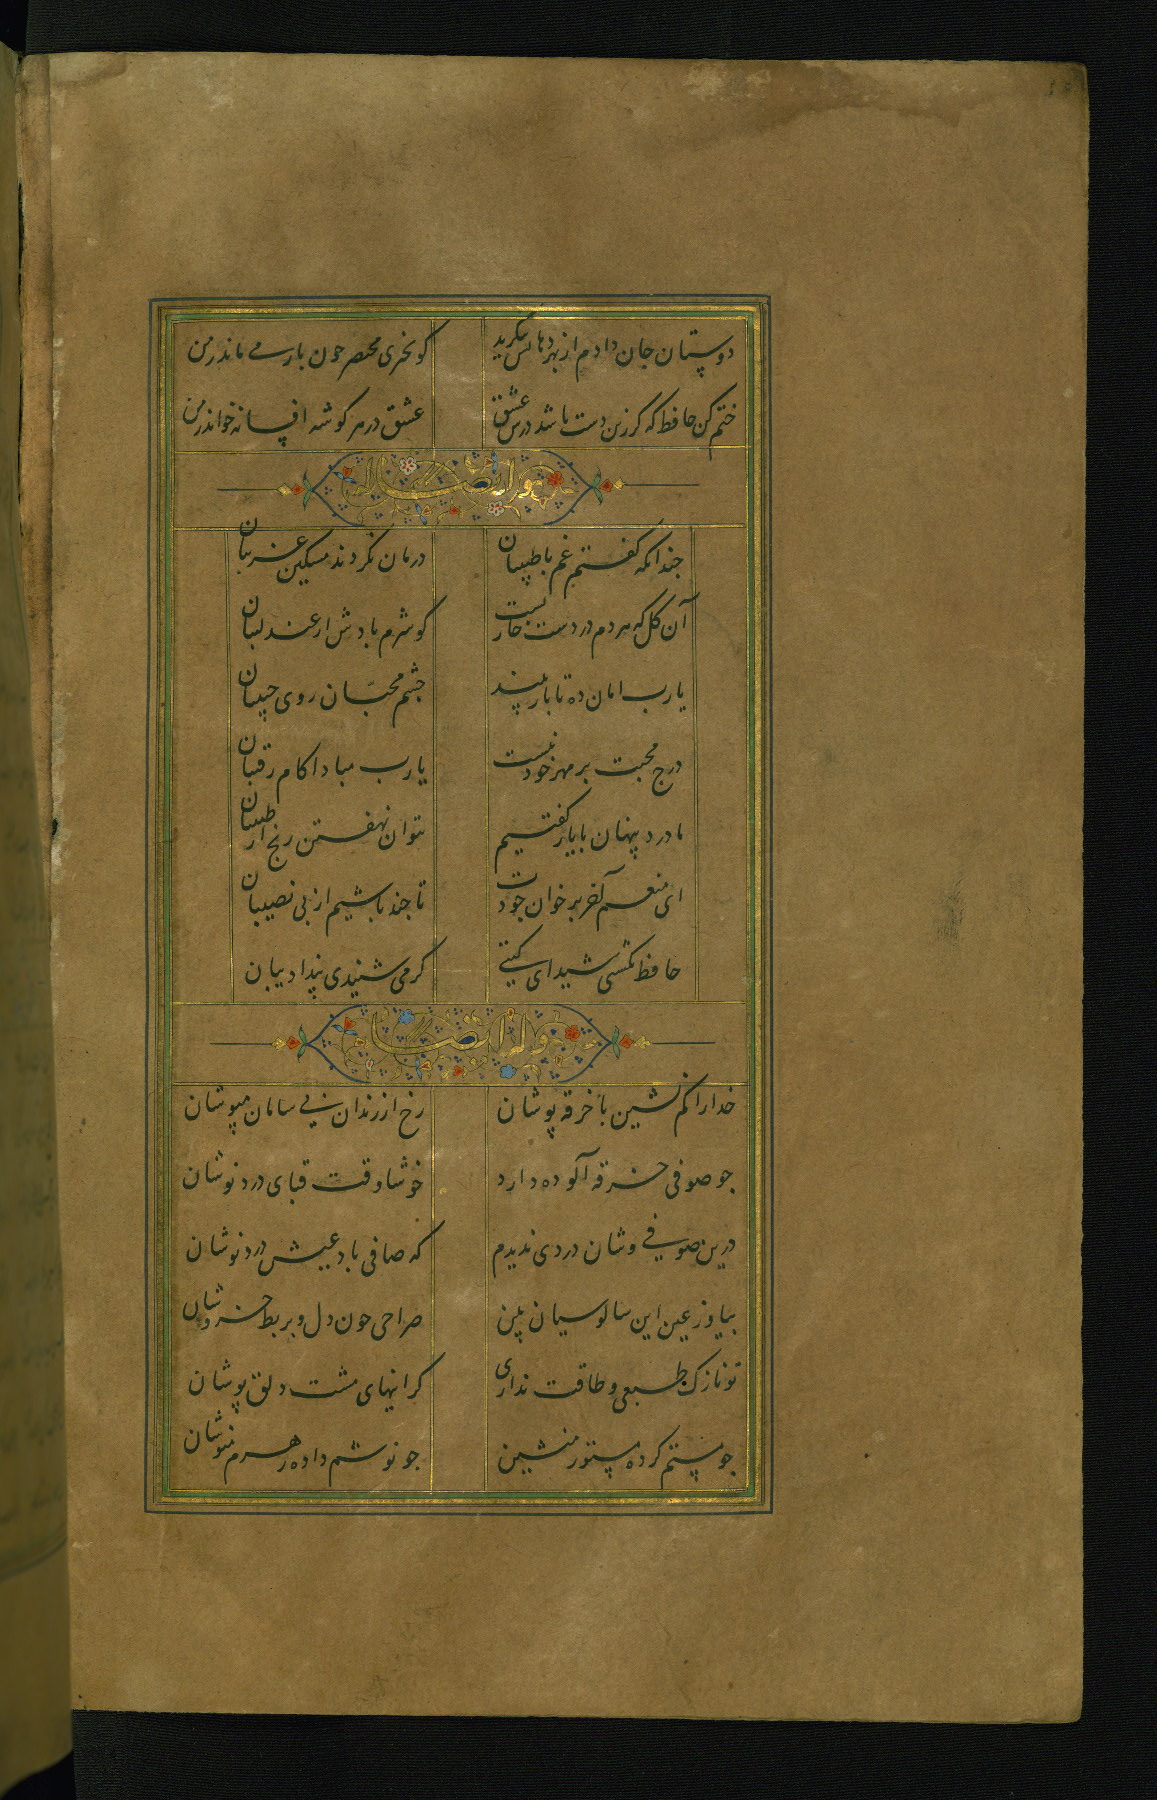 دوستان جان داده‌ام از بهر دهانش بنگرید کو بچیزی مختصر چون باز می ماند ز من
ختم کن حافظ که کر زین دست باشد درس عشق عشق در هر کوشه افسانه خواند ز من
وله ایضا
چندانکه کفتم غم با طبیبان درمان نکردند مسکین غریبان
آن کل که هر دم در دست خاریست کو شرم بادش از عندلیبان
یا رب امان ده تا باز بیند چشم محبّان روی حبیبان
درج محبت بر مهر خود نیست یا رب مبادا کام رقیبان
ما درد پنهان با یار کفتیم نتوان نهفتن رنج از طبیبان
ای منعم آخر بر خوان جودت تا چند باشیم از بی نصیبان
حافظ نکشتی شیدای کیتی کر می شنیدی پند ادیبان
وله ایضا
خدا را کم نشین با خرقه پوشان رخ از رندان بی سامان مپوشان
چو صوفی خرقه آلوده دارد خوشا وقت قبای درد نوشان
درین صوفی وشان دردی ندیدم که صافی باد عیش درد نوشان
بیا وز عین این سالوسیان بین صراحی خون دل و بربط خروشان
تو نازک طبعی و طاقت نداری کرانیهای مشت دلق پوشان
چو مستم کرده مستور منشین چو نوشم داده زهرم منوشان